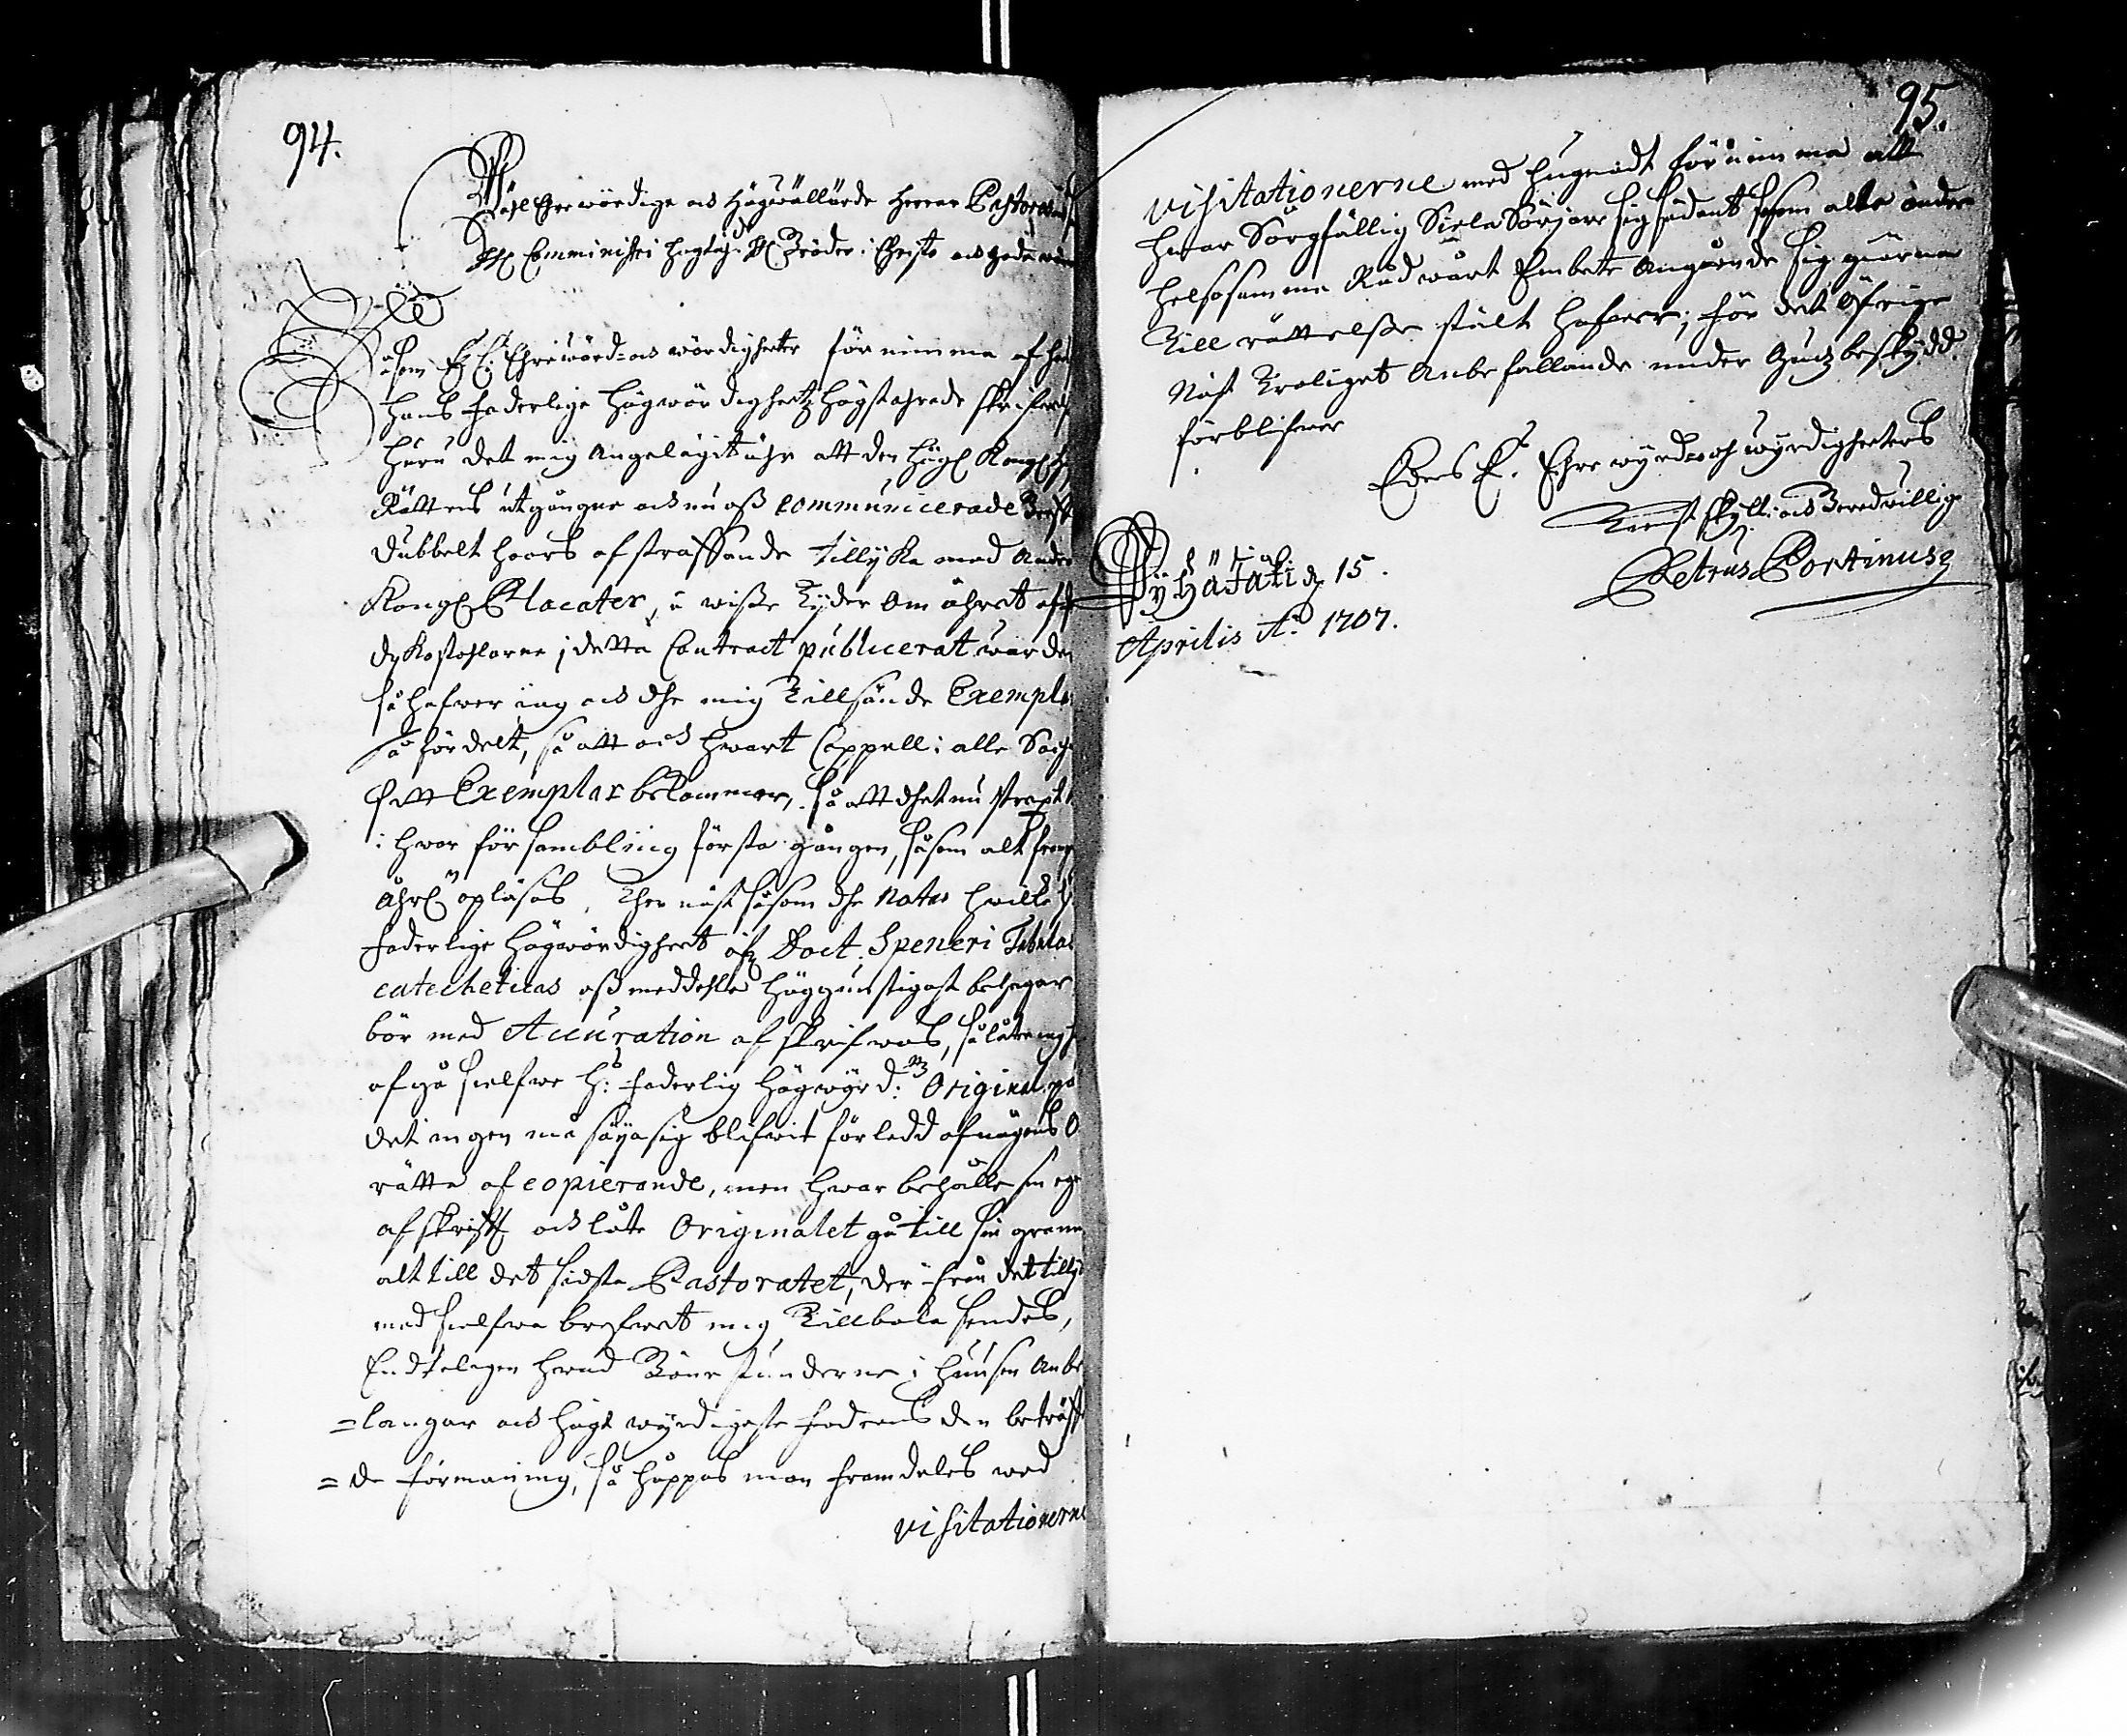 94.
Wähl Ehrewördige och Högwällärde Herrar Pastores
Comministri Bröder i Christo och gode
Såsom E. E. Ehrewörd: och wördigheeter förnimma af
hans Faderlige Högwördigheetz Högstährade skrifwelse
huru det mig angelägit ähr att den Högl Kongl
Rättens utgångne och nu oss communicerade
dubbelt hoors afstraffande tillyka med andre
Kongl Placater, å wisse tijder om åhret af
Predikostohlarne i detta Contract publicerat warder
så hafwer iag och dhe mig tillsände Exemplar
så fördelt, så att och hwart Cappell i alle
sitt Exemplar bekommer, så att dhet nu strax
i hwar försambling första gången, såsom alt
åhrl opläses, Ther näst såsom dhe notas hwilke
Faderlige Högwördigheet öfr Doct. Speneri Tabulas
catecheticas oss meddehla höggunstigast behagar
bör med Accuration afskrifwas, så låter iag
afgå sielfwe H: Faderlig Högwyrd: Original på
det ingen må säija sig blifwit förledd af någons O-
rätta af copierande, men hwar behålle sin egen
afskrifft och låte Originalet gå till sin granne
alt till det sidsta Pastoratet, der ifrån det tillijka
med sielfwa brefwet mig tillbaka sendes,
Endteligen hwad Bönestunderne i huusen anbe
=langar och högt wyrdigste Fadrens der beträff
=de förmaning, så håppas man framdeles wed
visitationerne
95.
visitationerne med hugnadt förnimma att
hwar Sorgfällig Siela Sörjare sig sådant såsom alte andre
helsosamma Råd wårt Embete angående sig giärna
till rättelsse stält hafwer; för det öfrige
näst troliget anbefallande under Gudz beskydd.
förblifwer
Eders E. Ehrewyrd: och wyrdigheeters
Tienstskyll: och Beredwillige
Petrus Portinus
Pyhäjåki d. 15.
Aprilis Ao 1707.